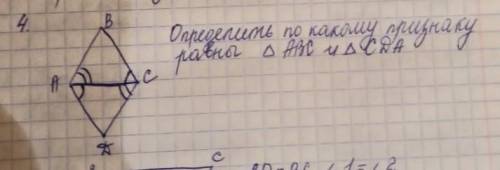 4.
B
Определить по какому признаку
равны △ ABC и △ CDA
A
C
D
C